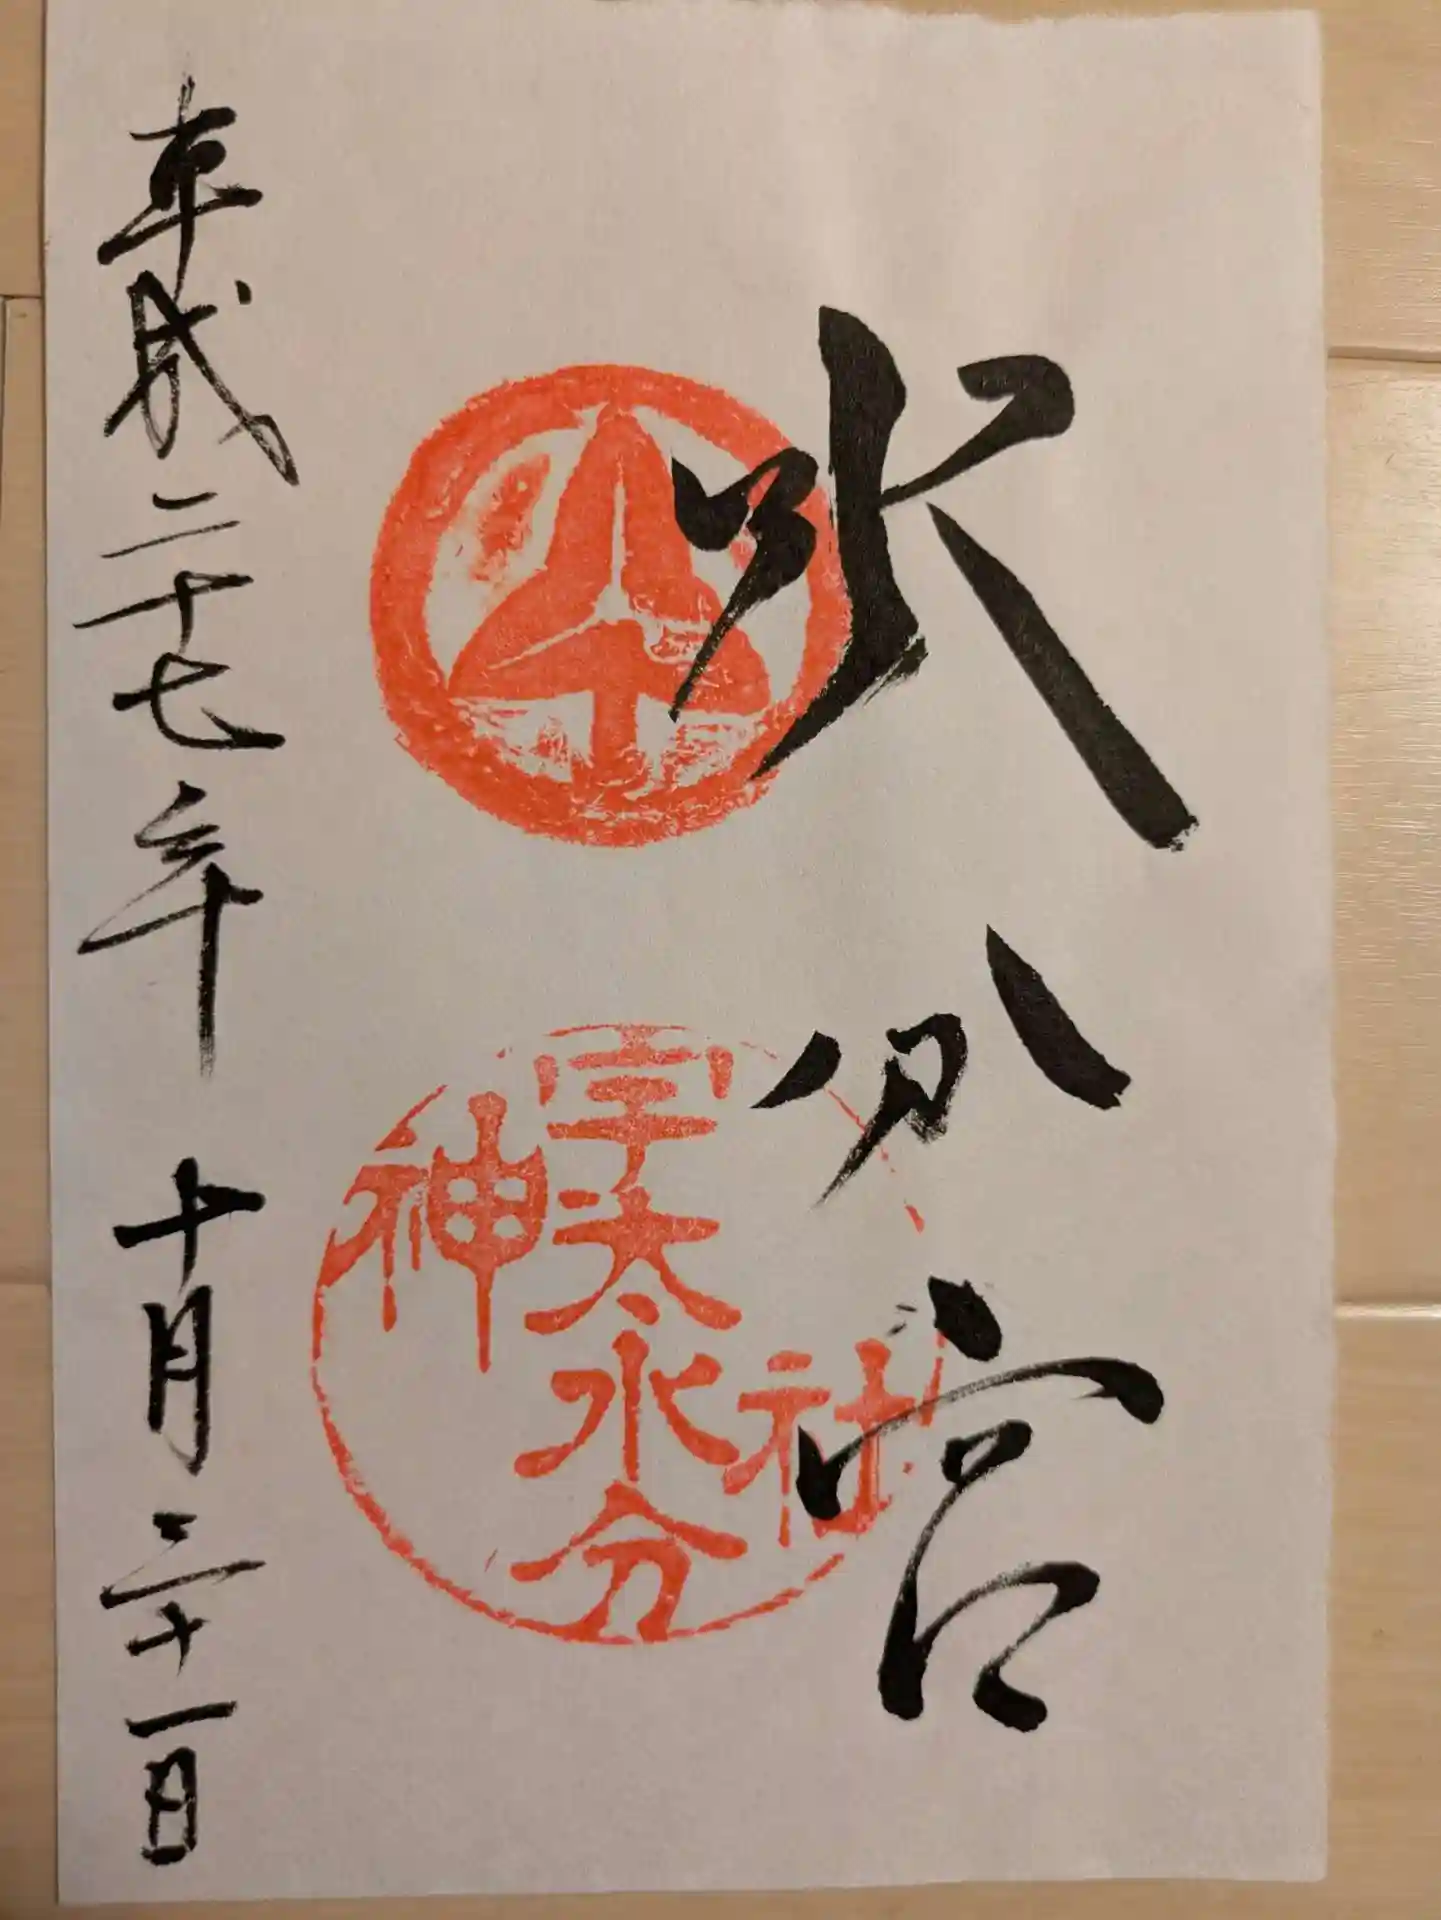 水分宮
宇太水分
神社
平成二十七年 十月三十一日